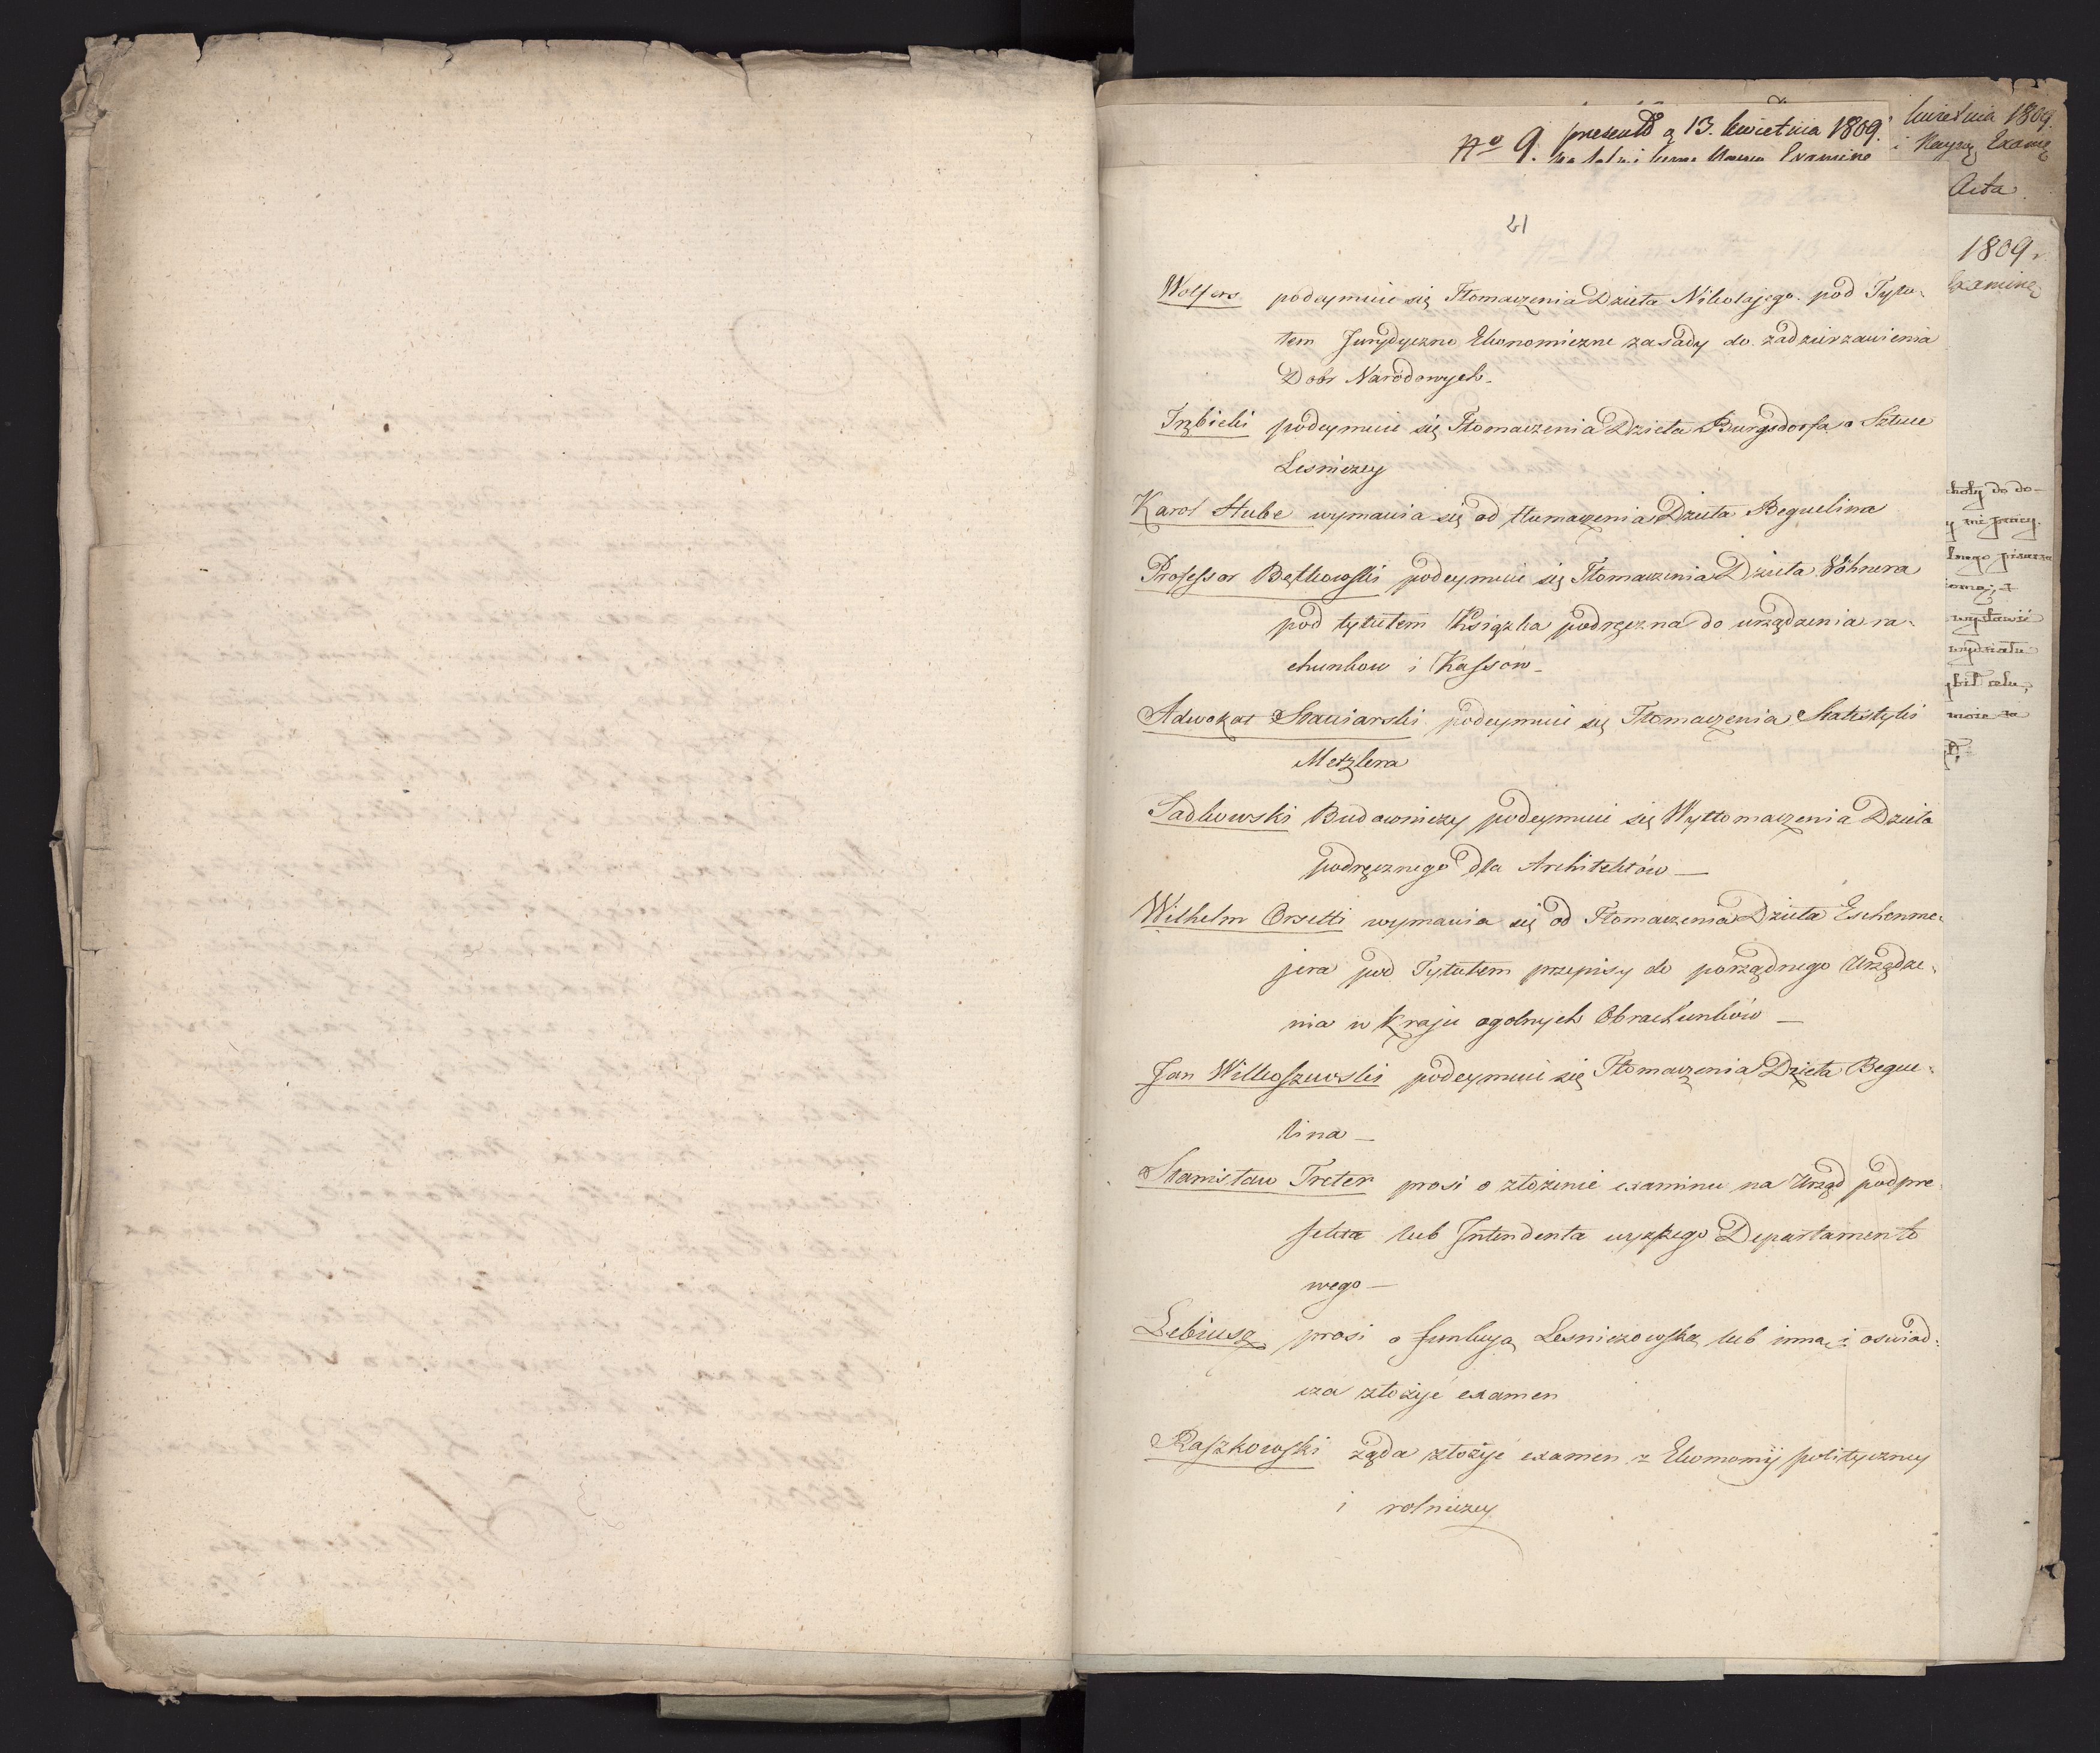 No 9. presentd a 13. kwietnia 1809.
Examine
kwietnia 1809.
Acta
1809.
21
Wolfers podeymuie się Tłomaczenia Dzieła Nikolajego. pod Tytu-
łem Jurydyczno Ekonomiczne zasady do zadzierzawienia
Dobr Narodowych.
Trzbicki podeymuie się Tłomaczenia Dzieła Burgsdorfa o Sztuce
Lesniczey
Karol Hube wymawia się od tłumaczenia Dzieła Beguelina
Professor Bętkowski podeymuie się Tłomaczenia Dzieła Wöhnera
pod tytułem Książka podręczna do urządzenia ra-
chunkow i Kassow
Adwokat Stawiarski podeymuie się Tłomaczenia Statistyki
Metzlera
Sadkowski Budowniczy podeymuie się Wytłomaczenia Dzieła
podręcznego dla Architektów —
Wilhelm Orsetti wymawia się od Tłomaczenia Dzieła Eschenme-
jera pod Tytułem przepisy do porządnego Urządze-
nia w Kraju ogolnych Obrachunków —
Jan Wilkoszewski podeymuie się Tłomaczenia Dzieła Begue-
lina —
Stanisław Treter prosi o złożenie examinu na Urząd podpre
fekta lub Intendenta wyższego Departamento
wego —
Lebiusz prosi o funkcyą Lesniczowską lub inną i oswiad-
cza złożyć examen
Raszkowski żąda złożyć examen z Ekonomij polityczney
i rolniczey
choły do do-
y nie pracy.
wystawić
wydziału
może za